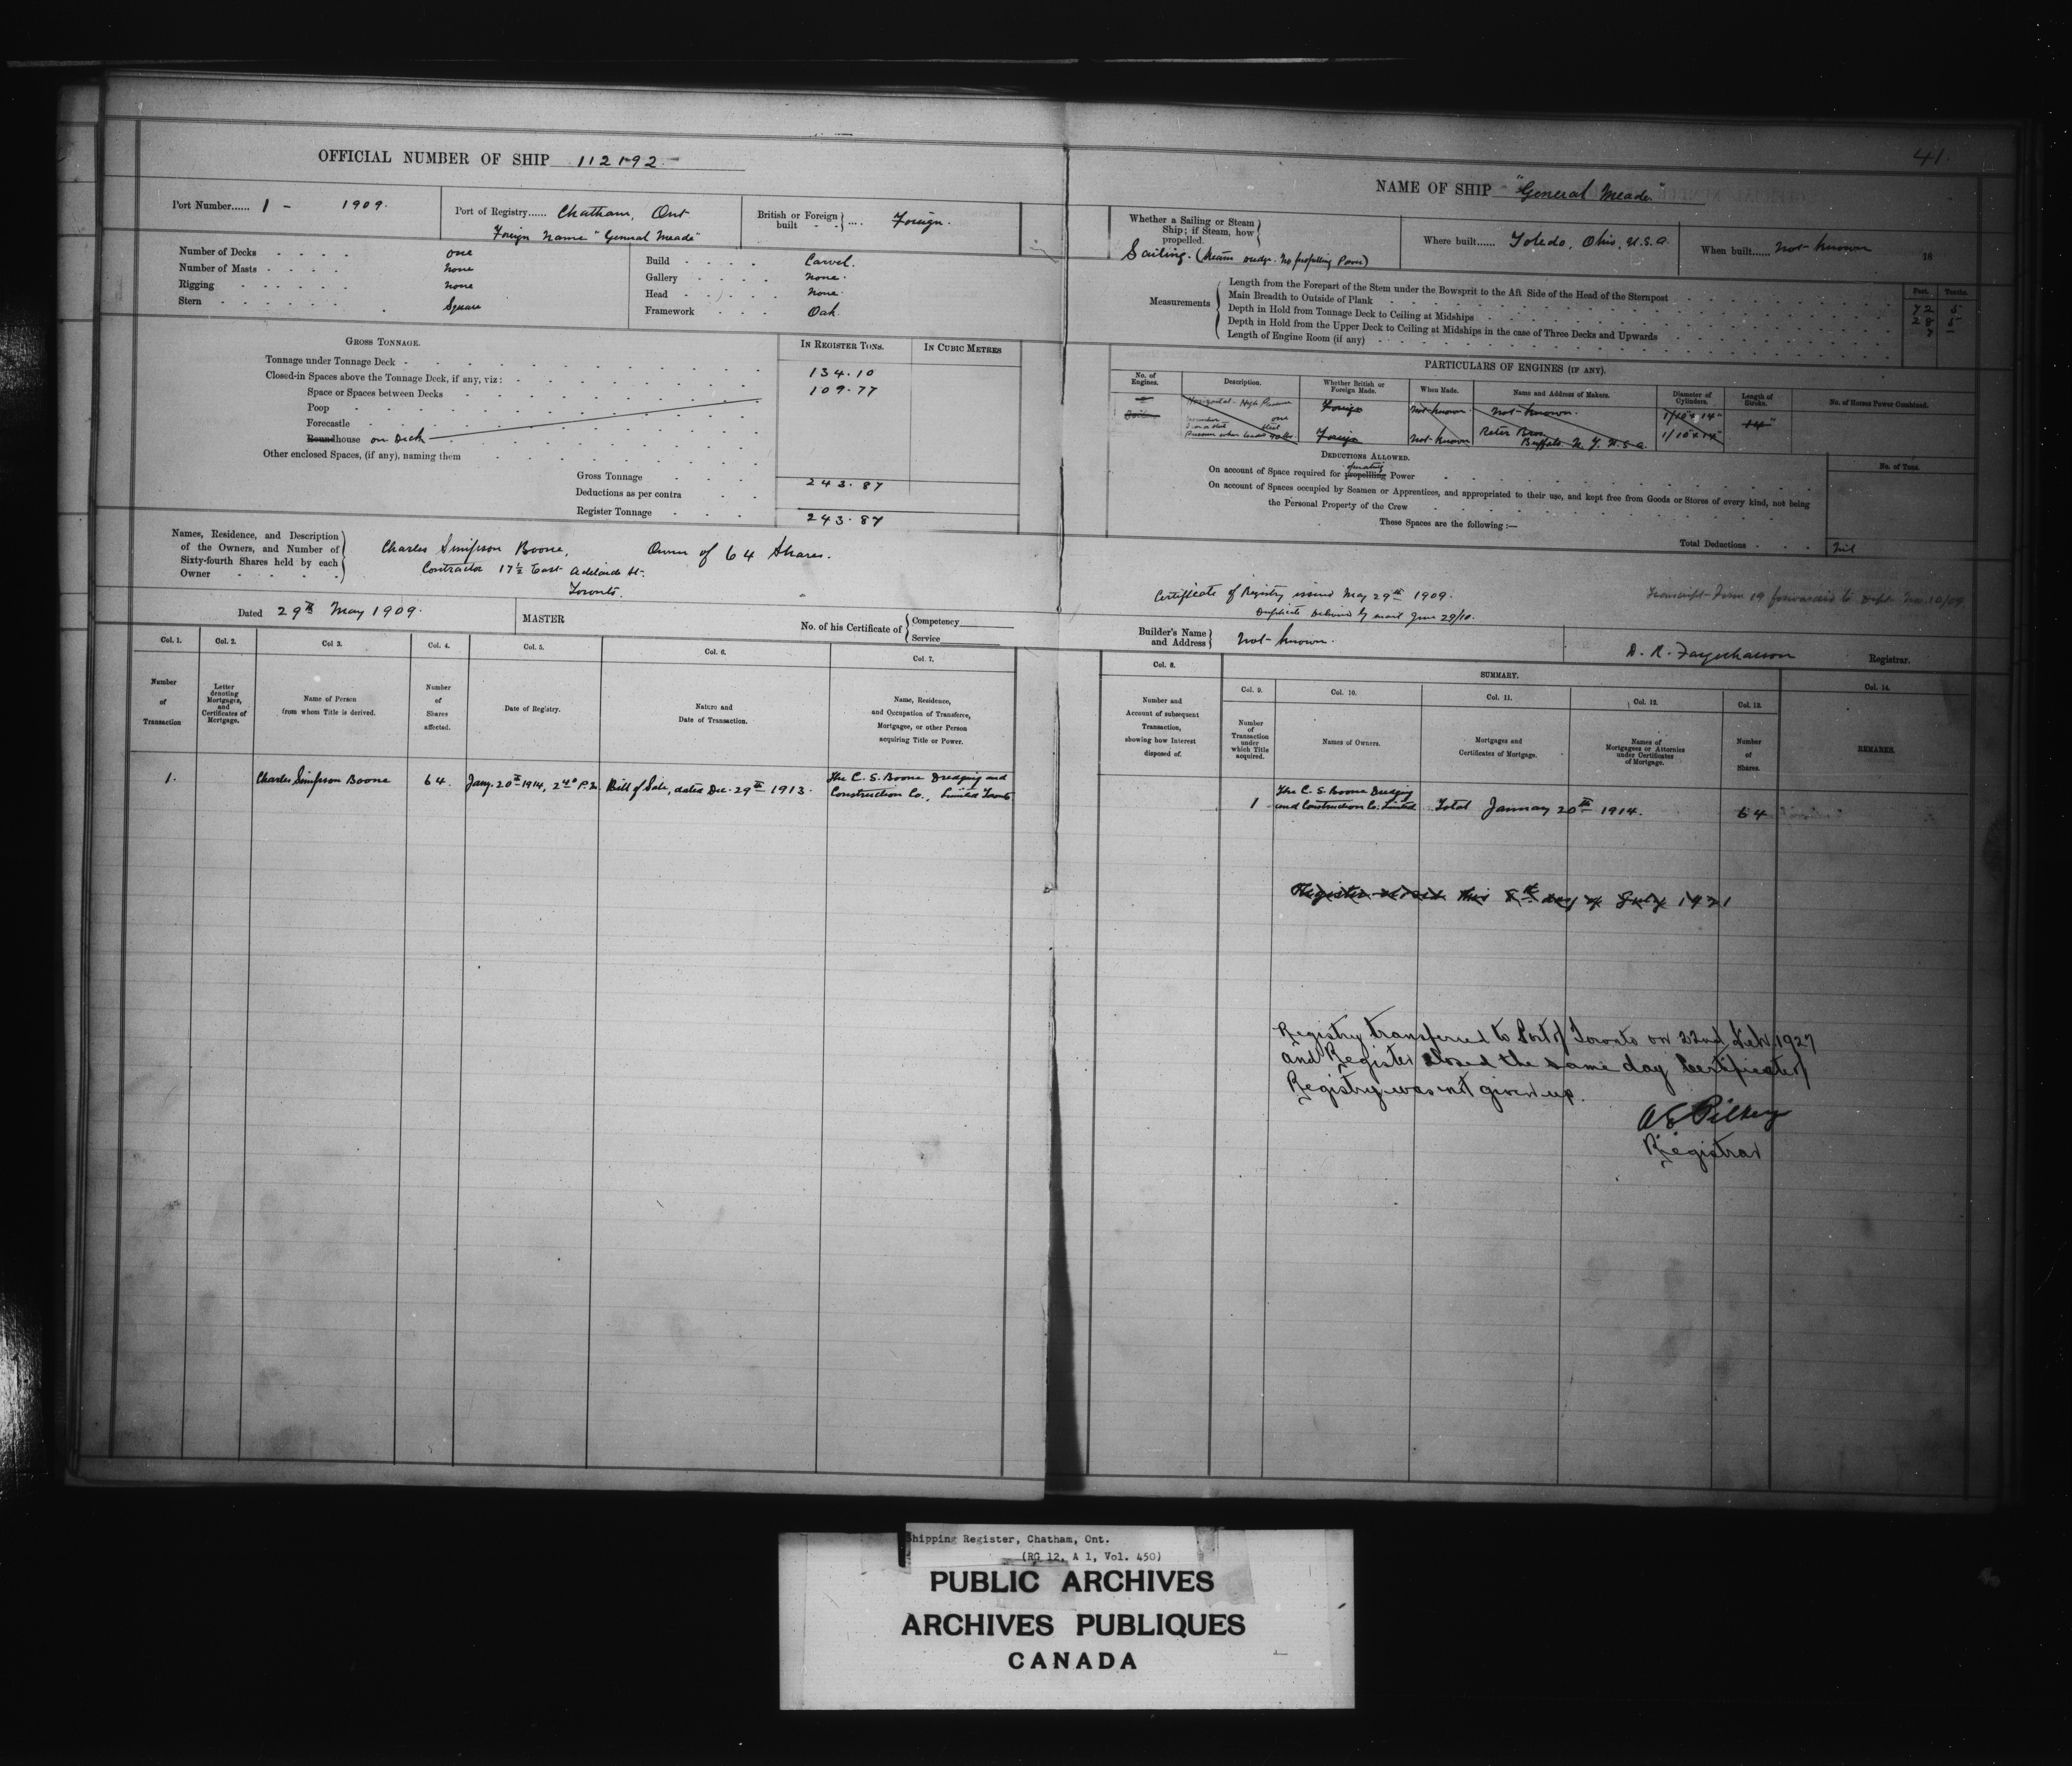 41.
OFFICIAL NUMBER OF SHIP 112192
NAME OF SHIP "General Meade"
Port Number...... 1 - 1909.
Port of Registry...... Chatham, Ont
Foreign Name "General Meade"
British or Foreign built .... Foreign.
Whether a Sailing or Steam Ship; if Steam, how propelled.
Sailing. (Steam dredge. No propelling Power)
Where built...... Toledo, Ohio, U.S.A.
When built...... Not known 18
Number of Decks one
Number of Masts None
Rigging none
Stern Square
Build Carvel.
Gallery None.
Head None.
Framework Oak.
Measurements
Feet. Tenths.
Length from the Forepart of the Stem under the Bowsprit to the Aft Side of the Head of the Sternpost 72 5
Main Breadth to Outside of Plank 28 5
Depth in Hold from Tonnage Deck to Ceiling at Midships 7 –
Depth in Hold from the Upper Deck to Ceiling at Midships in the case of Three Decks and Upwards
Length of Engine Room (if any)
GROSS TONNAGE.
IN REGISTER TONS.
IN CUBIC METRES
Tonnage under Tonnage Deck 134.10
Closed-in Spaces above the Tonnage Deck, if any, viz: 109.77
Space or Spaces between Decks
Poop
Forecastle
Roundhouse on Deck
Other enclosed Spaces, (if any), naming them
Gross Tonnage 243.87
Deductions as per contra
Register Tonnage 243.87
PARTICULARS OF ENGINES (IF ANY).
No. of Engines.
Description.
Whether British or Foreign Made.
When Made.
Name and Address of Makers.
Diameter of Cylinders.
Length of Stroke.
No. of Horses Power Combined.
Horizontal - High Pressure
Foreign
Not known
Not known.
Boilers
Foreign
Not known
Buffalo. N.Y. U.S.A.
DEDUCTIONS ALLOWED.
No. of Tons.
On account of Space required for propelling operating Power
On account of Spaces occupied by Seamen or Apprentices, and appropriated to their use, and kept free from Goods or Stores of every kind, not being
the Personal Property of the Crew
These Spaces are the following :—
Total Deductions Nil
Names, Residence, and Description of the Owners, and Number of Sixty-fourth Shares held by each Owner
Charles Simpson Boone, Owner of 64 Shares.
Contractor 17½ East Adelaide St.
Toronto.
Certificate of Registry issued May 29th 1909.
Duplicate Delivered by mail June 29/10.
Dated 29th May 1909.
MASTER
No. of his Certificate of
Competency
Service
Builder's Name and Address Not known.
Registrar.
Col. 1. Number of Transaction
Col. 2. Letter denoting Mortgages, and Certificates of Mortgage.
Col 3. Name of Person from whom Title is derived.
Col. 4. Number of Shares affected.
Col. 5. Date of Registry.
Col. 6. Nature and Date of Transaction.
Col. 7. Name, Residence, and Occupation of Transferee, Mortgagee, or other Person acquiring Title or Power.
Col. 8. Number and Account of subsequent Transaction, showing how Interest disposed of.
SUMMARY.
Col. 9. Number of Transaction under which Title acquired.
Col. 10. Names of Owners.
Col. 11. Mortgages and Certificates of Mortgage.
Col. 12. Names of Mortgagees or Attornies under Certificates of Mortgage.
Col. 13. Number of Shares.
Col. 14. REMARKS.
1. Charles Simpson Boone 64. Jany. 20th 1914, Bill of Sale, dated Dec. 29th 1913.
The C. S. Boone Dredging and
Construction Co., Limited Toronto
1 The C. S. Boone Dredging
and Construction Co. Limited Total January 20th 1914. 64
Register closed this 8th day of July 1921
Registry transferred to Port of Toronto on 22nd Feb. 1927
and Register closed the same day Certificate of
Registry was not given up.
Registrar
Shipping Register, Chatham, Ont.
(RG 12, A 1, Vol. 450)
PUBLIC ARCHIVES
ARCHIVES PUBLIQUES
CANADA